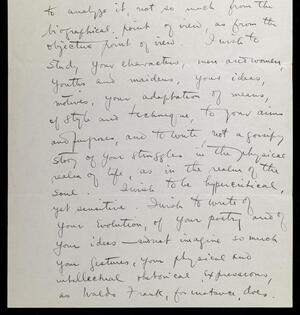 to analyze it, not so much from the
biographical point of view, as from the
objective point of view. I wish to
study your characters, men and women,
youths and maidens, your ideas,
motives, your adaptation of means,
of style and technique, to your aims
and purposes, and to write, not a gossipy
story of your struggles in the physical
realm of life, as in the realm of the
soul. I wish to be hypercritical,
yet sensitive. I wish to write of
your evolution, of your poetry and of
your ideas — and not imagine so much
your gestures, your physical and
intellectual rhetorical expressions,
as Waldo Frank, for instance, does.